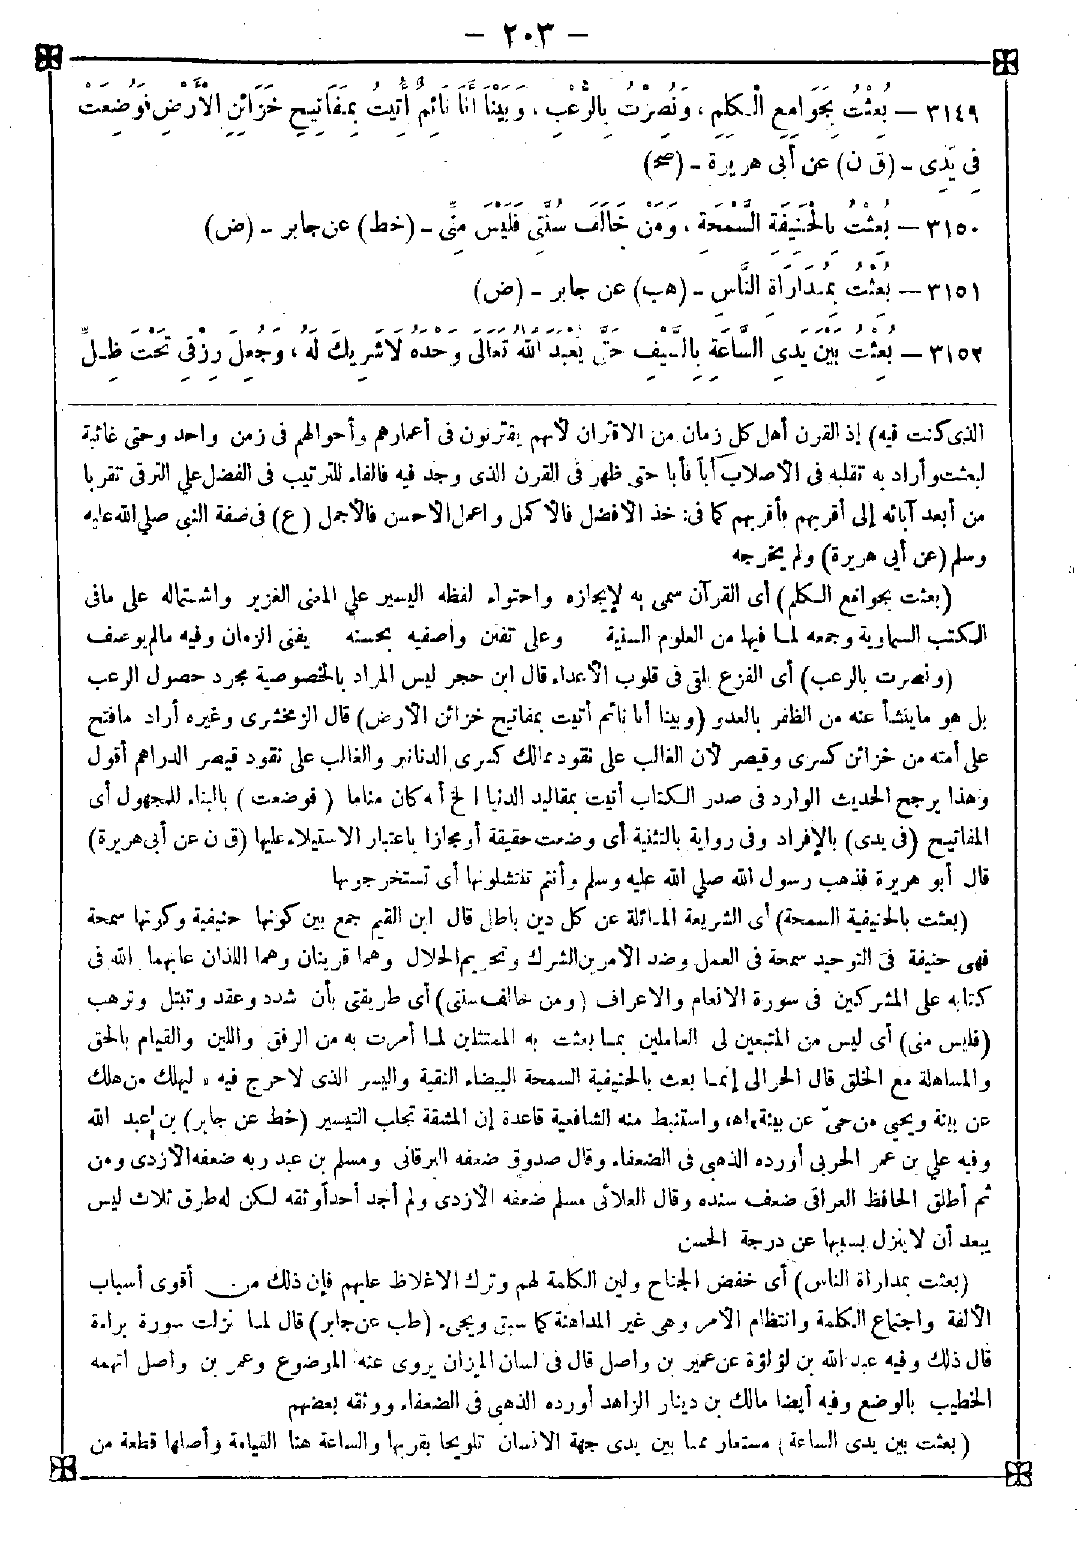 - ٢٠٣ -
٣١٤٩ - بُعِثْتُ بِجَوَامِعِ الْكَلِمِ، وَنُصِرْتُ بِالرُّعْبِ، وَبَيْنَا أَنَا نَائِمٌ أُتِيتُ بِمَفَاتِيحِ خَزَائِنِ الْأَرْضِ فَوُضِعَتْ
فِي يَدِي - (ق ن) عن أبي هريرة - (صح)
٣١٥٠ - بُعِثْتُ بِالْحَنِيفَةِ السَّمْحَةِ، وَمَنْ خَالَفَ سُنَّتِي فَلَيْسَ مِنِّي - (خط) عن جابر - (ض)
٣١٥١ - بُعِثْتُ بِمُدَارَاةِ النَّاسِ - (هب) عن جابر - (ض)
٣١٥٢ - بُعِثْتُ بَيْنَ يَدَيِ السَّاعَةِ بِالسَّيْفِ حَتَّى يُعْبَدَ اللهُ تَعَالَى وَحْدَهُ لَا شَرِيكَ لَهُ، وَجُعِلَ رِزْقِي تَحْتَ ظِلِّ
الذي كنت فيه) إذ القرن أهل كل زمان من الاقتران لأنهم يقترنون في أعمارهم وأحوالهم في زمن واحد وحتى غائية
لبعثت وأراد به تقلبه في الأصلاب أبا فأبا حتى ظهر في القرن الذي وجد فيه فالفاء للترتيب في الفضل على الترقي تقربا
من أبعد آبائه إلى أقربهم فأقربهم كما في: خذ الأفضل فالأكمل واعمل الأحسن فالأجمل (ع) في صفة النبي صلى الله عليه
وسلم (عن أبي هريرة) ولم يخرجه
(بعثت بجوامع الكلم) أي القرآن سمي به لإيجازه واحتواء لفظه اليسير على المعنى الغزير واشتماله على ما في
الكتب السماوية وجمعه لما فيها من العلوم السنية وعلى تفنن واصفيه بحسنه يفنى الزمان وفيه ما لم يوصف
(ونصرت بالرعب) أي الفزع يلقى في قلوب الأعداء قال ابن حجر ليس المراد بالخصوصية مجرد حصول الرعب
بل هو ما ينشأ عنه من الظفر بالعدو (وبينا أنا نائم أتيت بمفاتيح خزائن الأرض) قال الزمخشري وغيره أراد ما فتح
على أمته من خزائن كسرى وقيصر لأن الغالب على نقود ممالك كسرى الدنانير والغالب على نقود قيصر الدراهم أقول
وهذا يرجح الحديث الوارد في صدر الكتاب أتيت بمقاليد الدنيا الخ أنه كان مناما (فوضعت) بالبناء للمجهول أي
المفاتيح (في يدي) بالإفراد وفي رواية بالتثنية أي وضعت حقيقة أو مجازا باعتبار الاستيلاء عليها (ق ن عن أبي هريرة)
قال أبو هريرة فذهب رسول الله صلى الله عليه وسلم وأنتم تنتثلونها أي تستخرجونها
(بعثت بالحنيفية السمحة) أي الشريعة المائلة عن كل دين باطل قال ابن القيم جمع بين كونها حنيفية وكونها سمحة
فهي حنيفة في التوحيد سمحة في العمل وضد الأمرين الشرك وتحريم الحلال وهما قرينان وهما اللذان عابهما الله في
كتابه على المشركين في سورة الأنعام والأعراف (ومن خالف سنتي) أي طريقتي بأن شدد وعقد وتبتل وترهب
(فليس مني) أي ليس من المتبعين لي العاملين بما بعثت به الممتثلين لما أمرت به من الرفق واللين والقيام بالحق
والمساهلة مع الخلق قال الحرالي إنما بعث بالحنيفية السمحة البيضاء النقية واليسر الذي لا حرج فيه، ليهلك من هلك
عن بينة ويحيى من حيّ عن بينة، اهـ، واستنبط منه الشافعية قاعدة إن المشقة تجلب التيسير (خط عن جابر) بن عبد الله
وفيه علي بن عمر الحربي أورده الذهبي في الضعفاء وقال صدوق ضعفه البرقاني ومسلم بن عبد ربه ضعفه الأزدي ومن
ثم أطلق الحافظ العراقي ضعف سنده وقال العلائي مسلم ضعفه الأزدي ولم أجد أحدا وثقه لكن له طرق ثلاث ليس
يبعد أن لا ينزل بسببها عن درجة الحسن
(بعثت بمداراة الناس) أي خفض الجناح ولين الكلمة لهم وترك الاغلاظ عليهم فإن ذلك من أقوى أسباب
الألفة واجتماع الكلمة وانتظام الأمر وهي غير المداهنة كما سبق ويجيء (طب عن جابر) قال لما نزلت سورة براءة
قال ذلك وفيه عبد الله بن لؤلؤة عن عمير بن واصل قال في لسان الميزان يروي عنه الموضوع وعمر بن واصل اتهمه
الخطيب بالوضع وفيه أيضا مالك بن دينار الزاهد أورده الذهبي في الضعفاء ووثقه بعضهم
(بعثت بين يدي الساعة) مستعار مما بين يدي جهة الإنسان تلويحا بقربها والساعة هنا القيامة وأصلها قطعة من